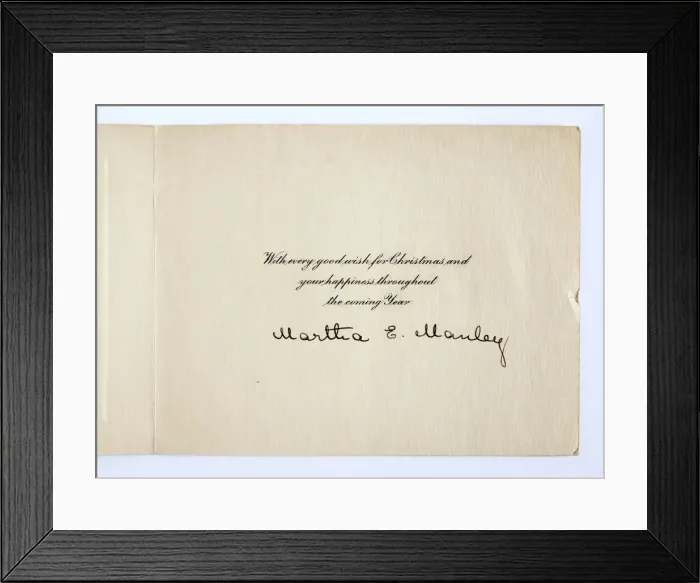 With every good wish for Christmas and
your happiness throughout
the coming Year
Martha E. Manley